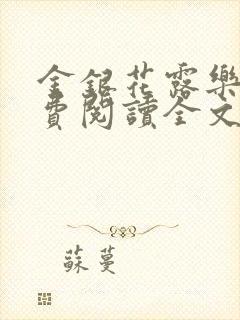 金銀花露樂
費閱讀全文
蘇蔓